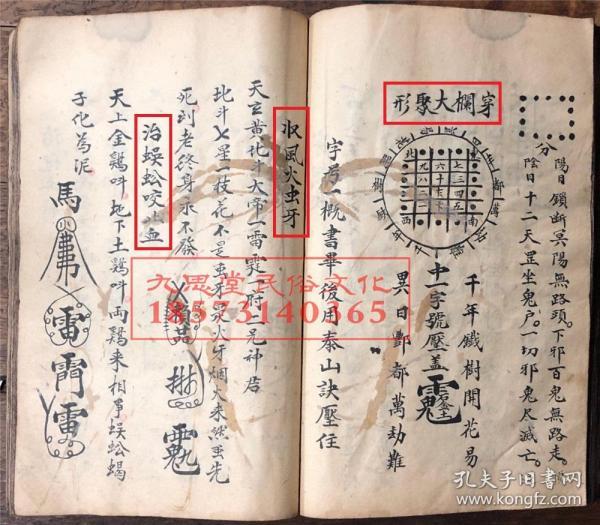 陽日鎖断冥陽無路頭。下邪百鬼無路走。
分
陰日十二天罡坐鬼户。一切邪鬼尽滅亡。
穿欄大聚形
北
南
西
千年鐵樹開花易
十一字號壓一盖
異日酆都萬劫難
字為一概書畢後用泰山訣壓住
収風火虫牙
天玄黄北斗大帝一雷霆
北斗七星一枝花不是虫牙是火牙烟火来熬虫先
死到老終身永不發
治蜈蚣咬止血
天上金鷄呌地下土鷄呌両鷄来相爭蜈蚣蝎
子化為泥
馬
雷
霄
雷
九思堂民俗文化
18573140365
孔夫子旧书网
www.kongfz.com